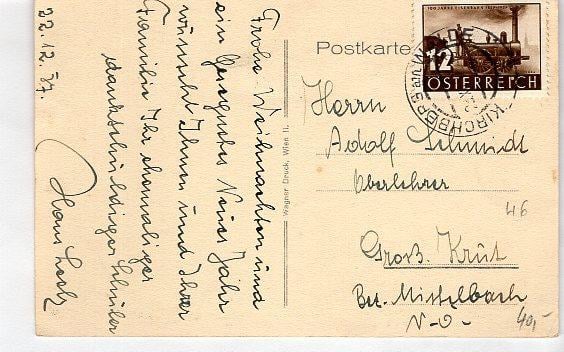 22.12.37.
Frohe Weihnachten und
ein Gesegnetes Neues Jahr
wünscht Ihnen und Ihrer
Familie Ihr ehemaliger
dankschuldiger Schüler
Hans
Postkarte
100 JAHRE EISENBAHN
12
ÖSTERREICH
KIRCHBERG
Wagner Druck, Wien II.
Herrn
Adolf Schmidt
Oberlehrer
46
Groß. Krut
Bez. Mistelbach
N-Ö-
40,-